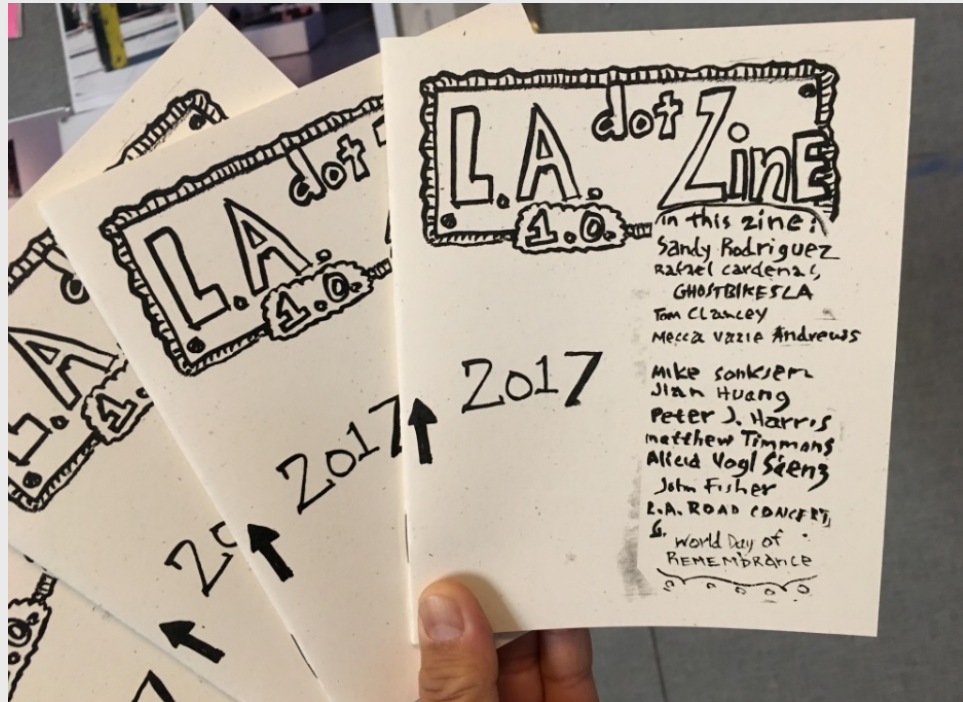 L.A. dot Zine
1.0.
in this zine:
Sandy Rodriguez
Rafael Cardenas,
GHOSTBIKESLA
Tom Clancey
Mecca Vazie Andrews
Mike Sonksen
Jian Huang
Peter J. Harris
Matthew Timmons
Alicia Vogl Saenz
John Fisher
L.A. ROAD CONCERTS,
&
World Day of
REMEMBRANCE
2017
L.A. dot
1.0.
2017
L.A.
1.
20